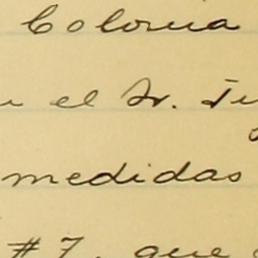 Colonia
el Sr.
medidas
#7, que